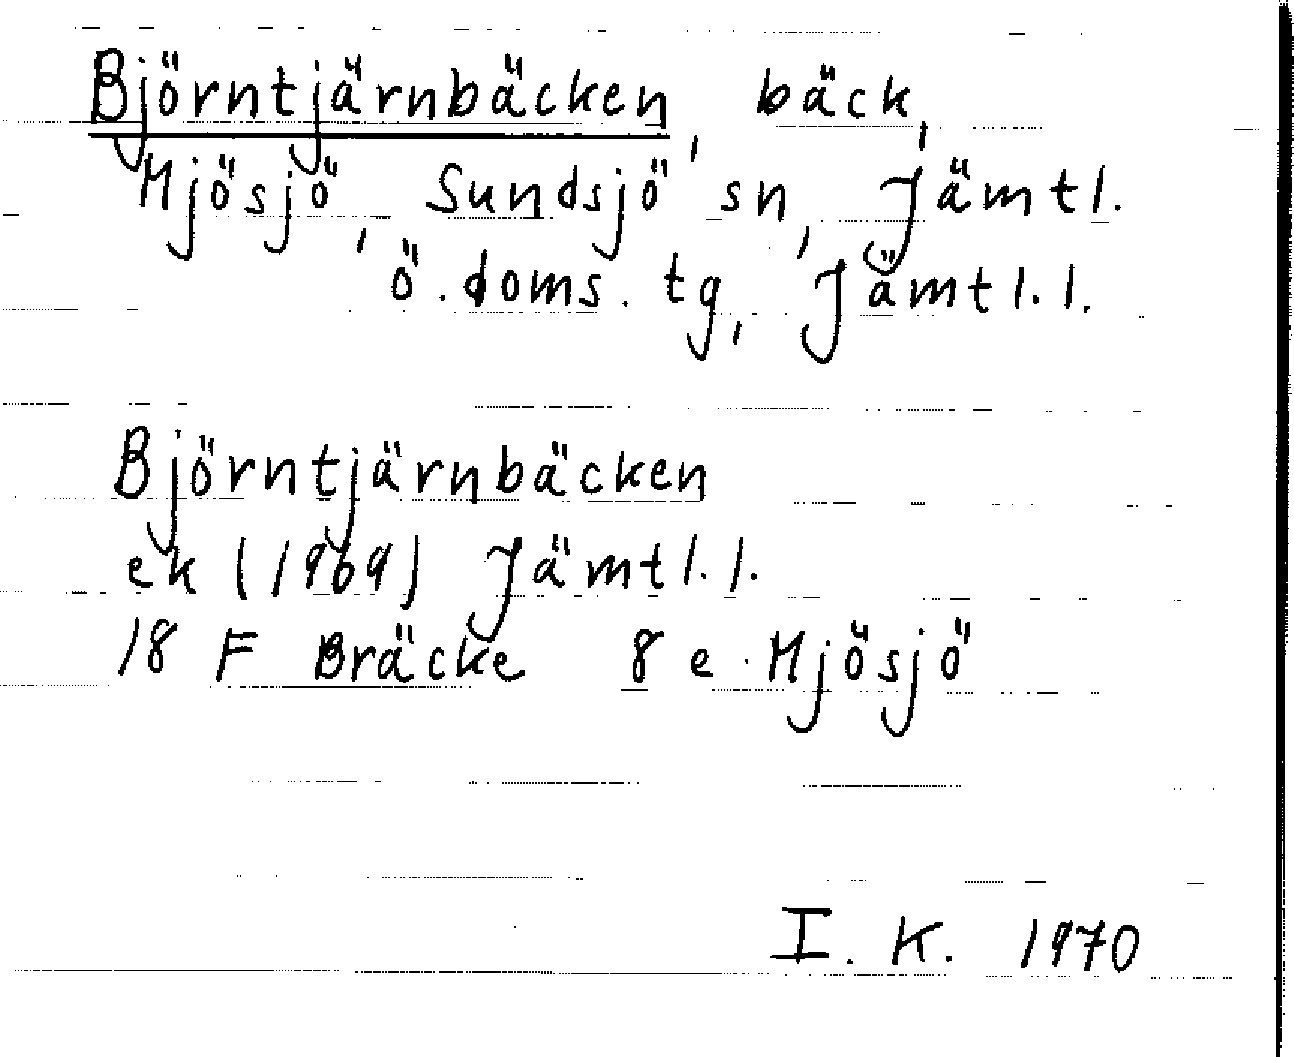 Björntjärnbäcken, bäck,
Mjösjö, Sundsjö sn, Jämtl.
ö. doms. tg, Jämtl. l.
Björntjärnbäcken
ek (1969) Jämtl. l.
18 F Bräcke 8 e Mjösjö
I. K. 1970